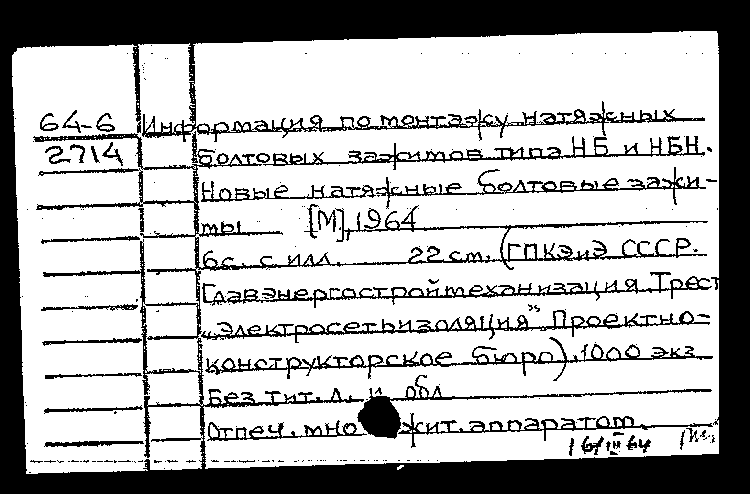 64-6 Информация по монтажу натяжных
2714 болтовых зажимов типа НБ и НБН.
Новые натяжные болтовые зажи-
мы [М], 1964
6с. с илл. 22 см. (ГПКЭиЭ СССР.
Главэнергостроймеханизация. Трест
„Электросетьизоляция" Проектно-
конструкторское бюро). 1000 экз
Без тит. л. и обл
Отпеч. мно жит. аппаратом.
16/III 64